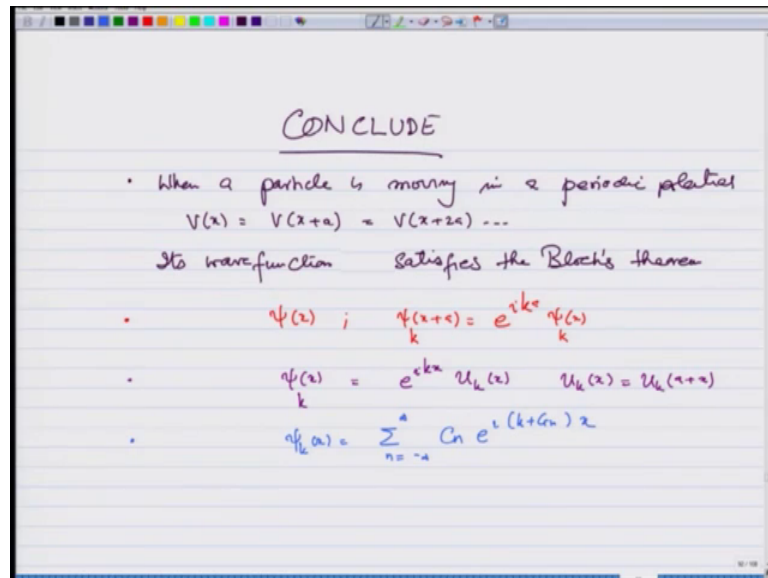 CONCLUDE
• When a particle is moving in a periodic potential
V(x) = V(x+a) = V(x+2a) ...
Its wavefunction satisfies the Bloch's theorem
• ψ(x) ; ψ_k(x+a) = e^{ika} ψ_k(x)
• ψ_k(x) = e^{ikx} u_k(x) u_k(x) = u_k(x+a)
• ψ_k(x) = Σ_{n=-∞}^{∞} C_n e^{i(k+G_n)x}